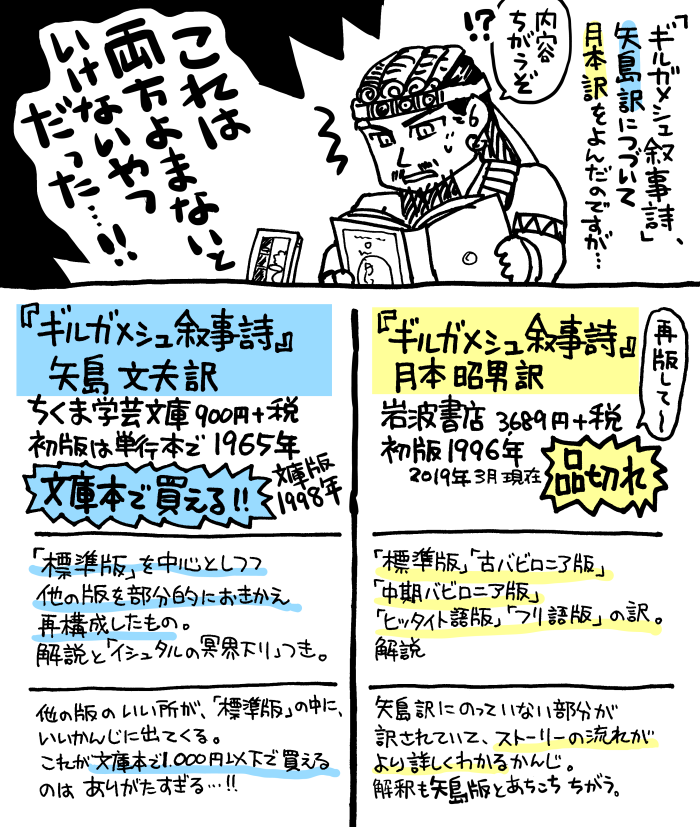 「ギルガメシュ叙事詩」、
矢島訳につづいて
月本訳をよんだのですが…
内容
ちがうぞ
!?
これは
両方よまないと
いけないやつ
だった…!!
『ギルガメシュ叙事詩』
矢島 文夫訳
ちくま学芸文庫 900円+税
初版は単行本で 1965年
文庫版
1998年
文庫本で買える!!
「標準版」を中心としつつ
他の版を部分的におきかえ
再構成したもの。
解説と「イシュタルの冥界下り」つき。
他の版のいい所が、「標準版」の中に、
いいかんじに出てくる。
これが文庫本で1.000円以下で買える
のは ありがたすぎる…!!
『ギルガメシュ叙事詩』
月本 昭男訳
再版して〜
岩波書店 3689円+税
初版1996年
2019年3月現在
品切れ
「標準版」「古バビロニア版」
「中期バビロニア版」
「ヒッタイト語版」「フリ語版」の訳。
解説
矢島訳にのっていない部分が
訳されていて、ストーリーの流れが
より詳しくわかるかんじ。
解釈も矢島版とあちこち ちがう。